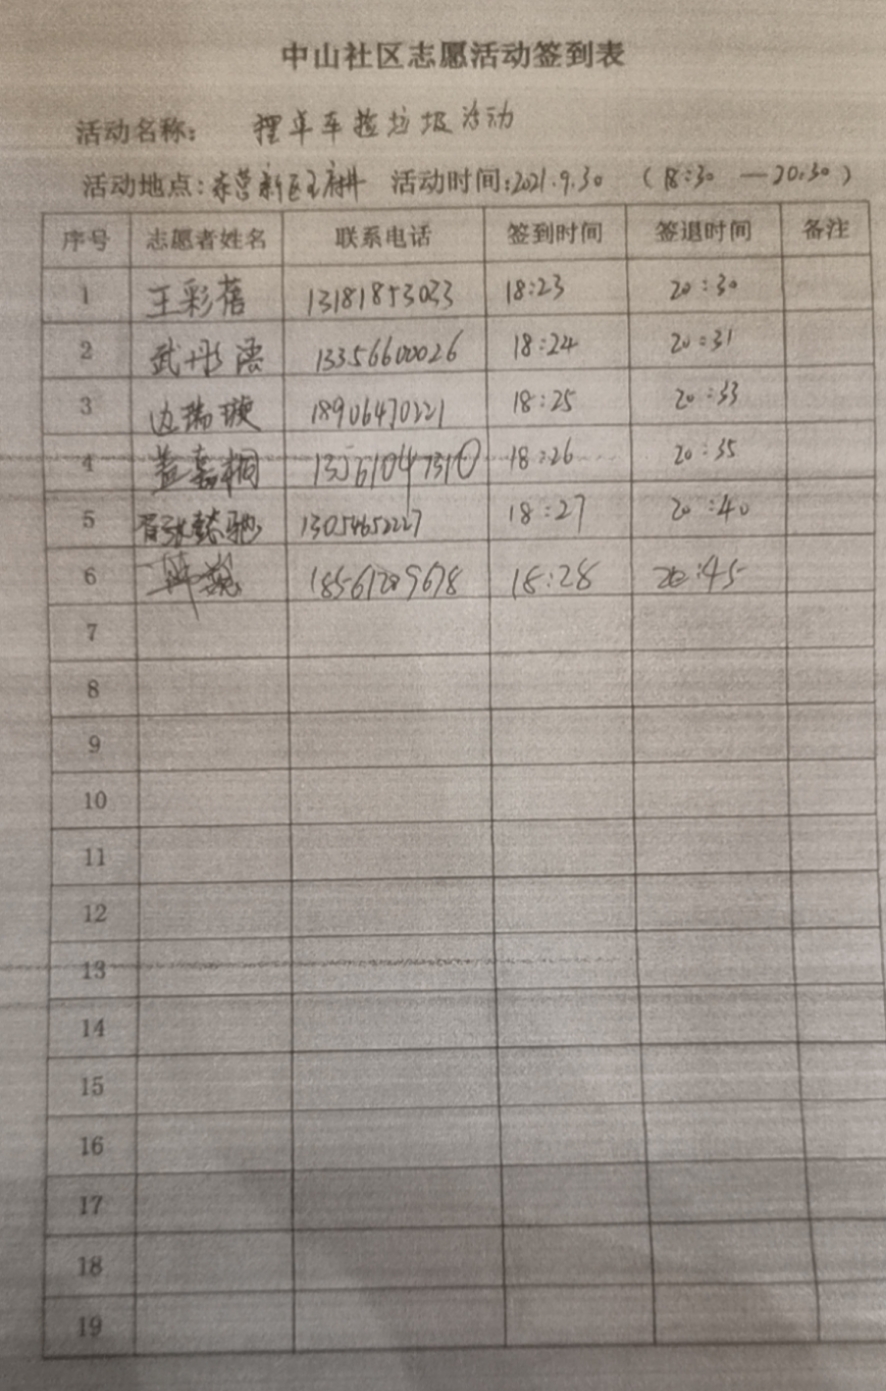 中山社区志愿活动签到表
活动名称: 摆单车捡垃圾活动
活动地点:东营新区王府井 活动时间:2021.9.30 (18:30 — 20:30)
序号 志愿者姓名 联系电话 签到时间 签退时间 备注
1 王彩蓓 13181853033 18:23 20:30
2 武彤语 13356600026 18:24 20:31
3 边瑞璇 18906470221 18:25 20:33
4 盖嘉桐 18:26 20:35
5 13054652227 18:27 20:40
6 18561209678 18:28 20:45
7
8
9
10
11
12
13
14
15
16
17
18
19